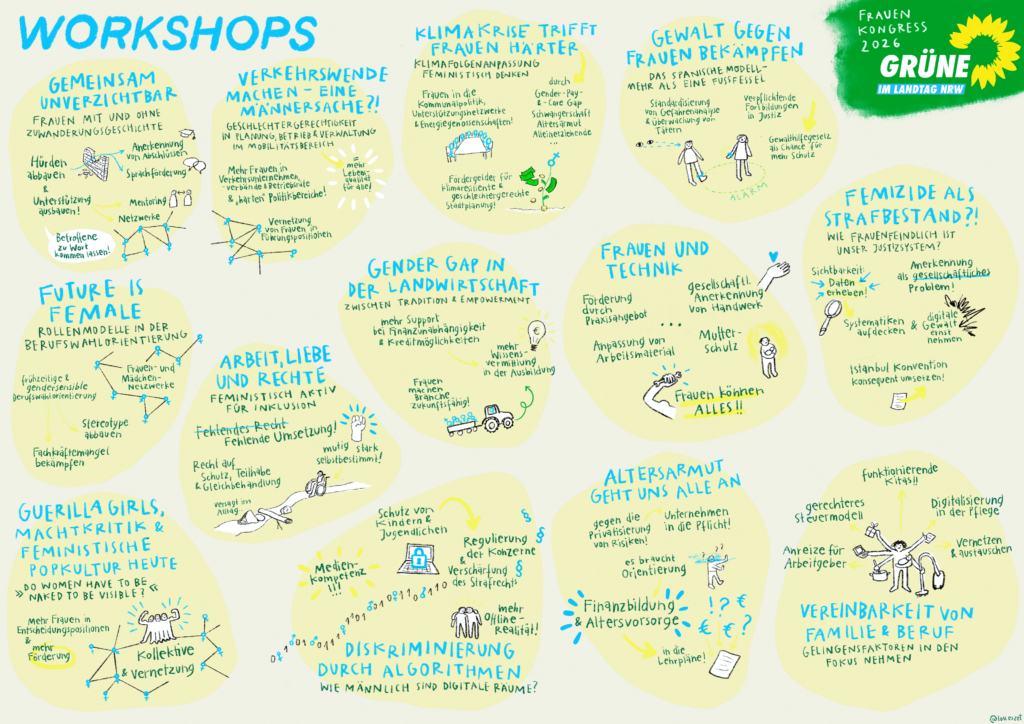 WORKSHOPS
FRAUEN
KONGRESS
2026
GRÜNE
IM LANDTAG NRW
GEMEINSAM
UNVERZICHTBAR
FRAUEN MIT UND OHNE
ZUWANDERUNGSGESCHICHTE
Hürden
abbauen
&
Unterstützung
ausbauen!
Anerkennung
von Abschlüssen
Sprachförderung
Mentoring
Netzwerke
Betroffene
zu Wort
kommen lassen!
VERKEHRSWENDE
MACHEN – EINE
MÄNNERSACHE?!
GESCHLECHTERGERECHTIGKEIT
IN PLANUNG, BETRIEB & VERWALTUNG
IM MOBILITÄTSBEREICH
Mehr Frauen in
Verkehrsunternehmen,
-verbände & Betriebsräte
& „harten" Politikbereiche!
= mehr
Lebens-
qualität
für alle!
Vernetzung
von Frauen in
Führungspositionen
KLIMAKRISE TRIFFT
FRAUEN HÄRTER
KLIMAFOLGENANPASSUNG
FEMINISTISCH DENKEN
Frauen in die
Kommunalpolitik,
Unterstützungsnetzwerke
& Energiegenossenschaften!
durch
Gender-Pay-
& -Care Gap
Schwangerschaft
Altersarmut
Alleinerziehende
...
Fördergelder für
klimaresiliente &
geschlechtergerechte
Stadtplanung!
GEWALT GEGEN
FRAUEN BEKÄMPFEN
DAS SPANISCHE MODELL –
MEHR ALS EINE FUSSFESSEL
Standardisierung
von Gefahrenanalyse
& Überwachung von
Tätern
Verpflichtende
Fortbildungen
in Justiz
Gewalthilfegesetz
als Chance für
mehr Schutz
ALARM
FEMIZIDE ALS
STRAFBESTAND?!
WIE FRAUENFEINDLICH IST
UNSER JUSTIZSYSTEM?
Sichtbarkeit:
Daten
erheben!
Anerkennung
als gesellschaftliches
Problem!
Systematiken
aufdecken
&
digitale
Gewalt
ernst
nehmen
Istanbul Konvention
konsequent umsetzen!
FUTURE IS
FEMALE
ROLLENMODELLE IN DER
BERUFSWAHLORIENTIERUNG
frühzeitige &
gendersensible
Berufswahlorientierung
Frauen- und
Mädchen-
Netzwerke
Stereotype
abbauen
Fachkräftemangel
bekämpfen
ARBEIT, LIEBE
UND RECHTE
FEMINISTISCH AKTIV
FÜR INKLUSION
Fehlendes Recht
Fehlende Umsetzung!
Recht auf
Schutz, Teilhabe
& Gleichbehandlung
mutig stark
selbstbestimmt!
versagt im
Alltag
GENDER GAP IN
DER LANDWIRTSCHAFT
ZWISCHEN TRADITION & EMPOWERMENT
mehr Support
bei Finanzunabhängigkeit
& Kreditmöglichkeiten
€
mehr
Wissens-
vermittlung
in der Ausbildung
Frauen
machen
Branche
zukunftsfähig!
FRAUEN UND
TECHNIK
Förderung
durch
Praxisangebot
gesellschaftl.
Anerkennung
von Handwerk
...
Anpassung von
Arbeitsmaterial
Mutter-
schutz
Frauen können
ALLES!!
GUERILLA GIRLS,
MACHTKRITIK &
FEMINISTISCHE
POPKULTUR HEUTE
»DO WOMEN HAVE TO BE
NAKED TO BE VISIBLE?«
Mehr Frauen in
Entscheidungspositionen
&
mehr
Förderung
Kollektive
& Vernetzung
Schutz von
Kindern &
Jugendlichen
Medien-
kompetenz
!!!
Regulierung
der Konzerne
&
Verschärfung
des Strafrechts
§
§
§
mehr
Offline-
Realität!
DISKRIMINIERUNG
DURCH ALGORITHMEN
WIE MÄNNLICH SIND DIGITALE RÄUME?
ALTERSARMUT
GEHT UNS ALLE AN
gegen die
Privatisierung
von Risiken!
Unternehmen
in die Pflicht!
es braucht
Orientierung
??
Finanzbildung
& Altersvorsorge
in die
Lehrpläne!
! ? €
€ € ?
funktionierende
Kitas!!
gerechteres
Steuermodell
Digitalisierung
in der Pflege
Anreize für
Arbeitgeber
Vernetzen
& austauschen
VEREINBARKEIT VON
FAMILIE & BERUF
GELINGENSFAKTOREN IN DEN
FOKUS NEHMEN